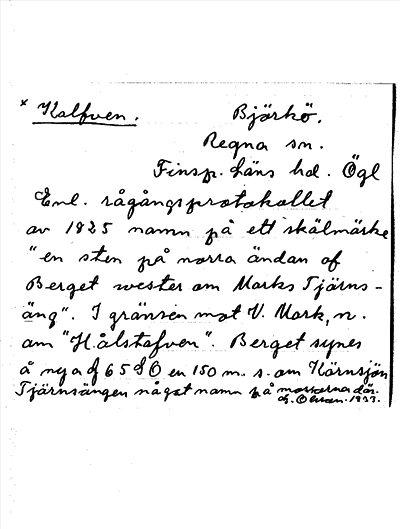 x Kalfven. Björkö.
Regna sn.
Finsp. läns hd. Ögl
Enl. rågångsprotokollet
av 1825 namn på ett skälmärke
"en sten på norra ändan af
Berget wester om Marks Tjärns-
äng". I gränsen mot V. Mark, n.
om "Hålstafven". Berget synes
å nya 65 en 150 m. s. om Hörnsjön
Tjärnsängen något namn på markerna där.
Olson. 1933.